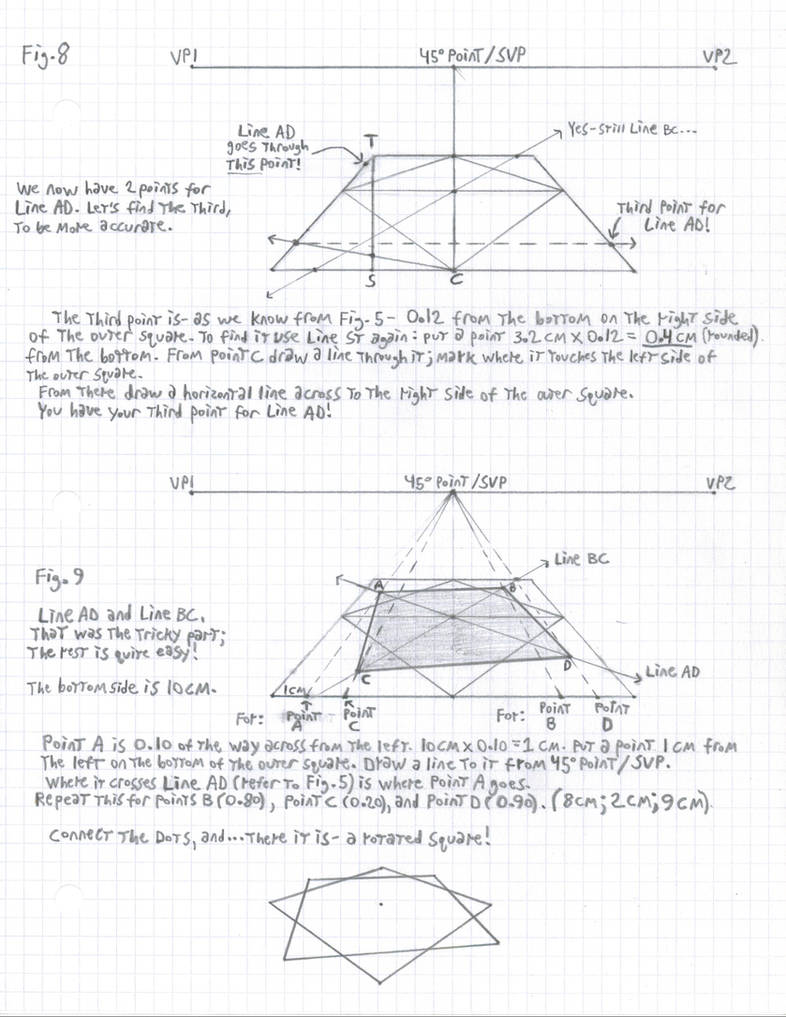 Fig. 8
VP1
45° Point/SVP
VP2
Line AD
goes Through
This Point!
T
Yes-still Line BC...
We now have 2 points for
Line AD. Let's find The Third,
To be More accurate.
Third Point for
Line AD!
S
C
The Third point is-as we know from Fig-5- 0.12 from The bottom on The right side
of The outer square. To find it use Line ST again: put a point 3.2 cm x 0.12 = 0.4 cm (rounded).
from The bottom. From point C draw a line Through it; mark where it touches The left side of
The outer square.
From There draw a horizontal line across To The right side of The outer square.
You have your Third point for Line AD!
VP1
45° Point/SVP
VP2
Fig. 9
Line BC
A
B
Line AD and Line BC.
That was The Tricky part;
The rest is quite easy!
C
D
Line AD
The bottom side is 10cm.
1cm
For:
Point
A
Point
C
For:
Point
B
Point
D
Point A is 0.10 of The way across from The left. 10cm x 0.10 = 1 cm. Put a point 1 cm from
The left on The bottom of The outer square. Draw a line To it from 45° Point/SVP.
Where it crosses Line AD (refer To Fig. 5) is where Point A goes.
Repeat This for points B (0.80), point C (0.20), and point D (0.90). (8cm; 2cm; 9cm).
Connect The Dots, and...There it is- a rotated square!